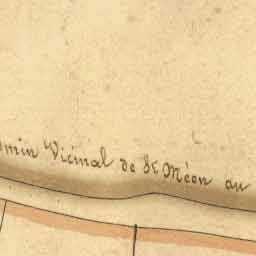 emin Vicinal de St Méen au